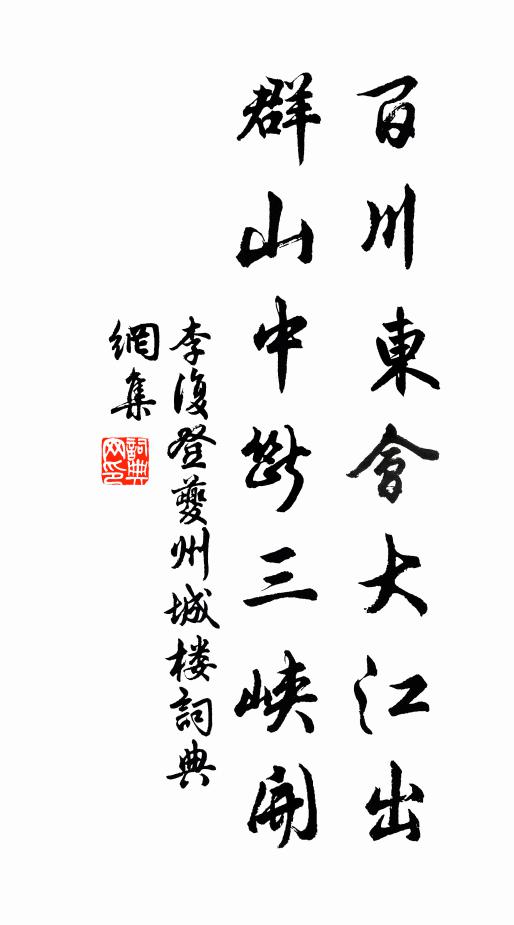 百川東會大江出
群山中斷三峽開
李復登夔州城楼詞典
網集
詞典網印